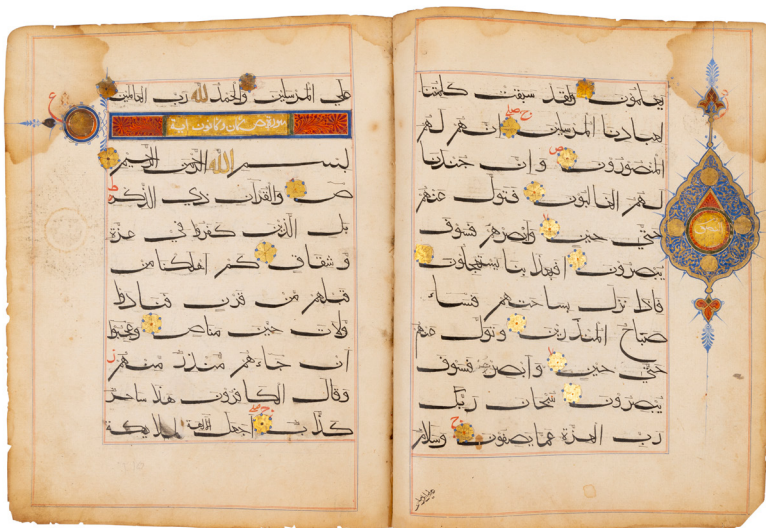 يعلمون ولقد سبقت كلمتنا
لعبادنا المرسلين انهم لهم
المنصورون وان جندنا
لهم الغالبون فتول عنهم
حتى حين وابصرهم فسوف
يبصرون افبعذابنا يستعجلون
فاذا نزل بساحتهم فساء
صباح المنذرين وتول عنهم
حتى حين وابصر فسوف
يبصرون سبحان ربك
رب العزة عما يصفون وسلام
على المرسلين والحمد لله رب العالمين
سورة ص ثمان وثمانون اية
بسم الله الرحمن الرحيم
ص والقران ذي الذكر
بل الذين كفروا في عزة
وشقاق كم اهلكنا من
قبلهم من قرن فنادوا
ولات حين مناص وعجبوا
ان جاءهم منذر منهم
وقال الكافرون هذا ساحر
كذاب اجعل الالهة